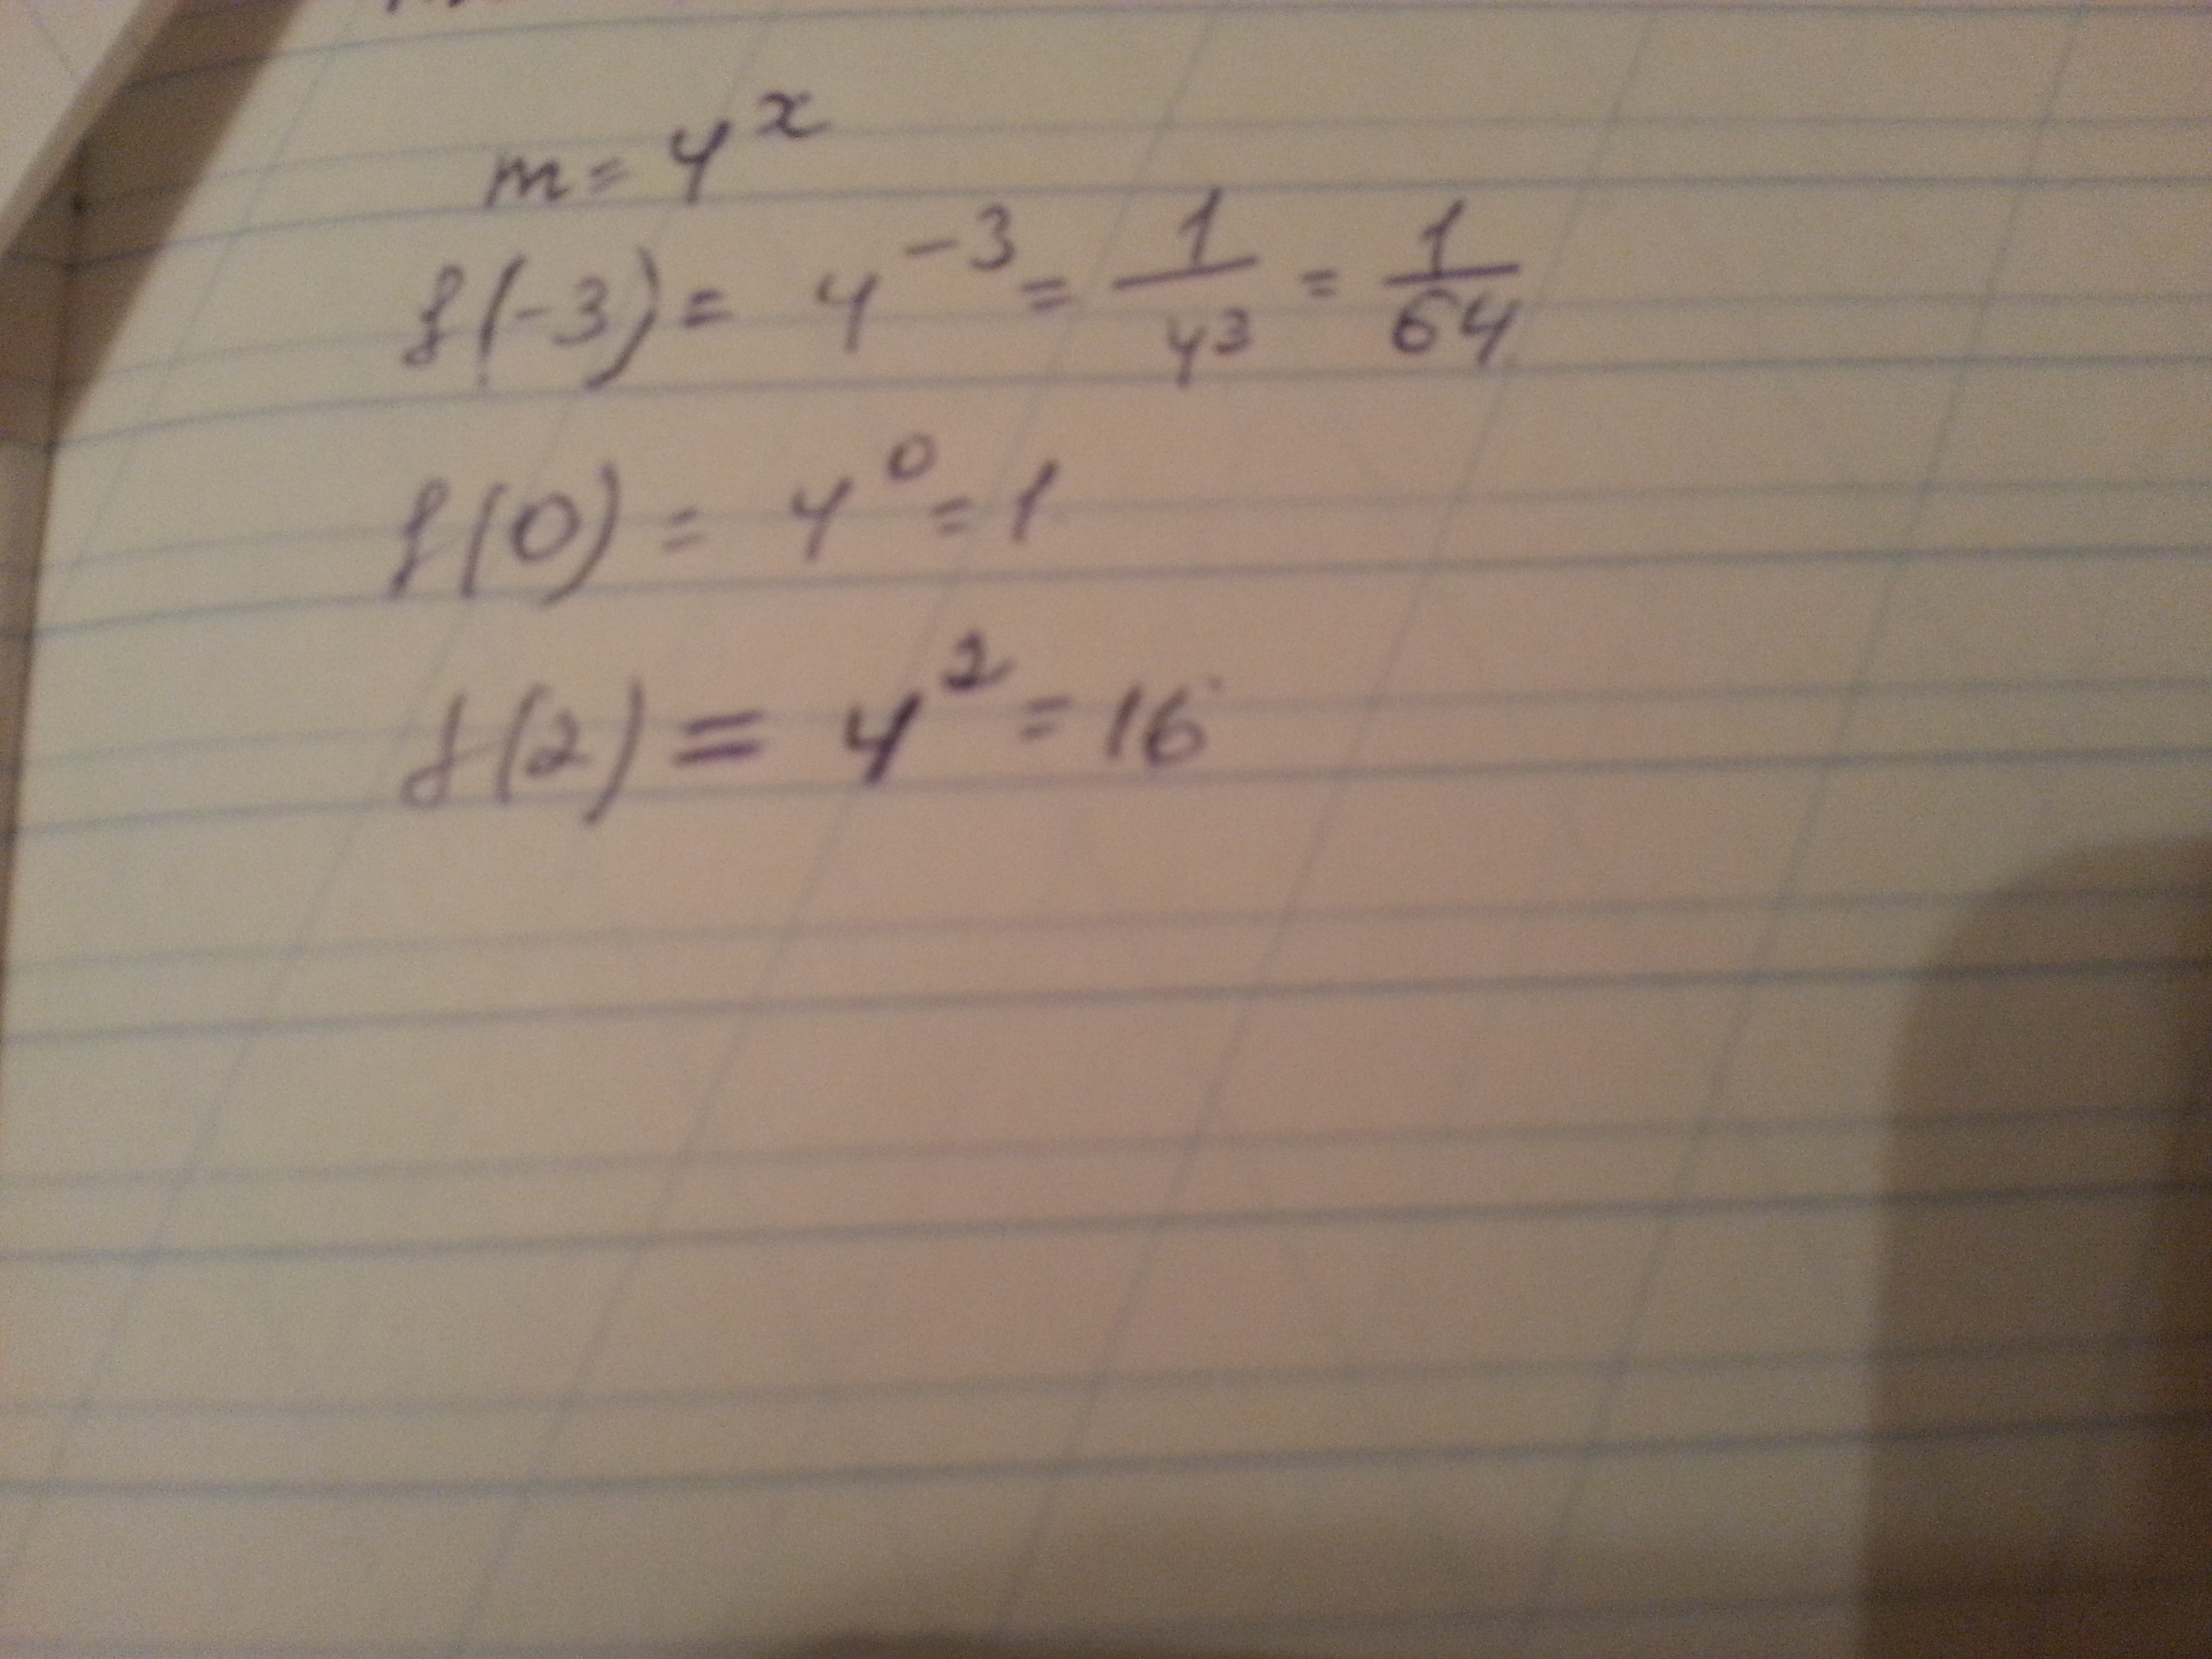 m = 4^x
f(-3) = 4^-3 = 1/4^3 = 1/64
f(0) = 4^0 = 1
f(2) = 4^2 = 16